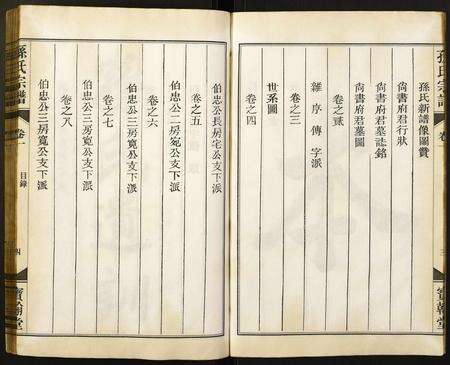 孫氏宗譜
卷一
孫氏新譜像圖贊
尙書府君行狀
尙書府君墓誌銘
尙書府君墓圖
卷之貳
雜序傳字派
卷之三
世系圖
卷之四
伯忠公長房宅公支下派
卷之五
伯忠公二房宛公支下派
卷之六
伯忠公三房寬公支下派
卷之七
伯忠公三房寬公支下派
卷之八
伯忠公三房寬公支下派
孫氏宗譜
卷一
目錄
四
寶翰堂
三
寶翰堂